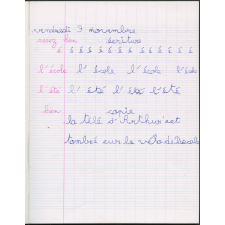 vendredi 9 novembre
assez bien écriture
é é é é é é é é é é é é
l'école l' école l' école l' école
l'été l' été l' été l' été
bien copie
la télé d'Arthur est
tombé sur le vélo de